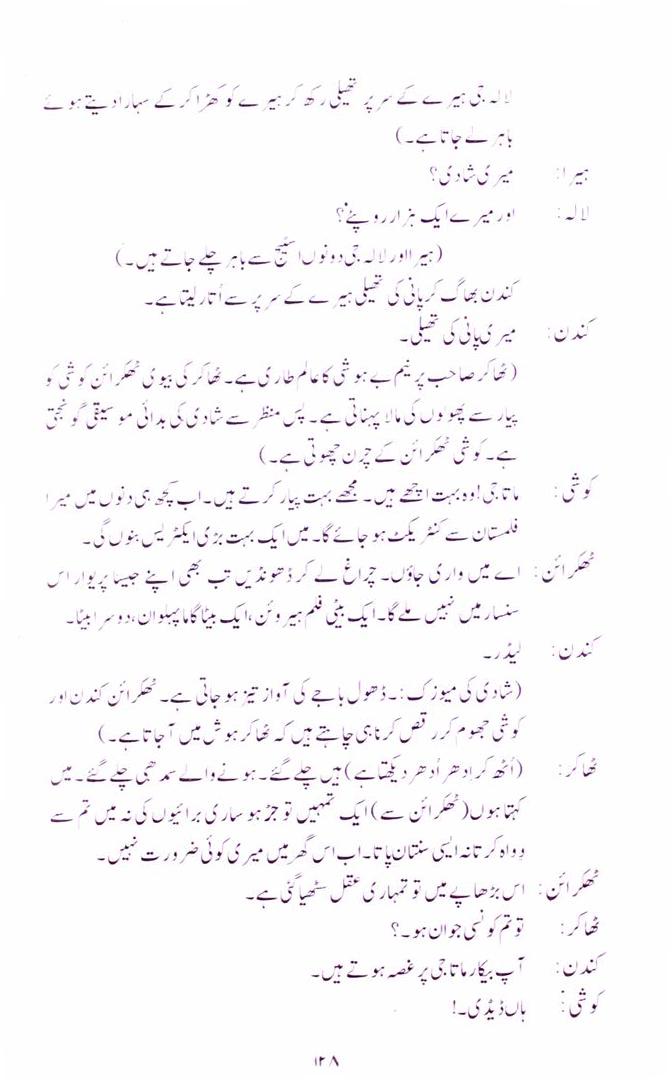 لالہ جی ہیرے کے سر پر تھیلی رکھ کر ہیرے کو کھڑا کر کے سہارا دیتے ہوئے
باہر لے جاتا ہے۔)
ہیرا: میری شادی؟
لالہ: اور میرے ایک ہزار روپئے؟
(ہیرا اور لالہ جی دونوں اسٹیج سے باہر چلے جاتے ہیں۔)
کندن بھاگ کر پانی کی تھیلی ہیرے کے سر پر سے اُتار لیتا ہے۔
کندن: میری پانی کی تھیلی۔
(ٹھاکر صاحب پر نیم بے ہوشی کا عالم طاری ہے۔ ٹھاکر کی بیوی ٹھکرائن کوشی کو
پیار سے پھولوں کی مالا پہناتی ہے۔ پس منظر سے شادی کی بدائی موسیقی گونجتی
ہے۔ کوشی ٹھکرائن کے چرن چھوتی ہے۔)
کوشی: ماتا جی! وہ بہت اچھے ہیں۔ مجھے بہت پیار کرتے ہیں۔ اب کچھ ہی دنوں میں میرا
فلمستان سے کنٹریکٹ ہو جائے گا۔ میں ایک بہت بڑی ایکٹریس بنوں گی۔
ٹھکرائن: اے میں واری جاؤں۔ چراغ لے کر ڈھونڈیں تب بھی اپنے جیسا پریوار اس
سنسار میں نہیں ملے گا۔ ایک بیٹی فلم ہیروئن، ایک بیٹا گاما پہلوان، دوسرا بیٹا۔
کندن: لیڈر۔
(شادی کی میوزک:۔ ڈھول باجے کی آواز تیز ہو جاتی ہے۔ ٹھکرائن کندن اور
کوشی جھوم کر رقص کرنا ہی چاہتے ہیں کہ ٹھاکر ہوش میں آ جاتا ہے۔)
ٹھاکر: (اُٹھ کر اِدھر اُدھر دیکھتا ہے) ہیں چلے گئے۔ ہونے والے سمدھی چلے گئے۔ میں
کہتا ہوں (ٹھکرائن سے) ایک تمہیں تو جڑ ہو ساری برائیوں کی نہ میں تم سے
وِواہ کرتا نہ ایسی سنتان پاتا۔ اب اس گھر میں میری کوئی ضرورت نہیں۔
ٹھکرائن: اس بڑھاپے میں تو تمہاری عقل سٹھیا گئی ہے۔
ٹھاکر: تو تم کونسی جوان ہو۔؟
کندن: آپ بیکار ماتا جی پر غصہ ہوتے ہیں۔
کوشی: ہاں ڈیڈی۔!
۱۲۸